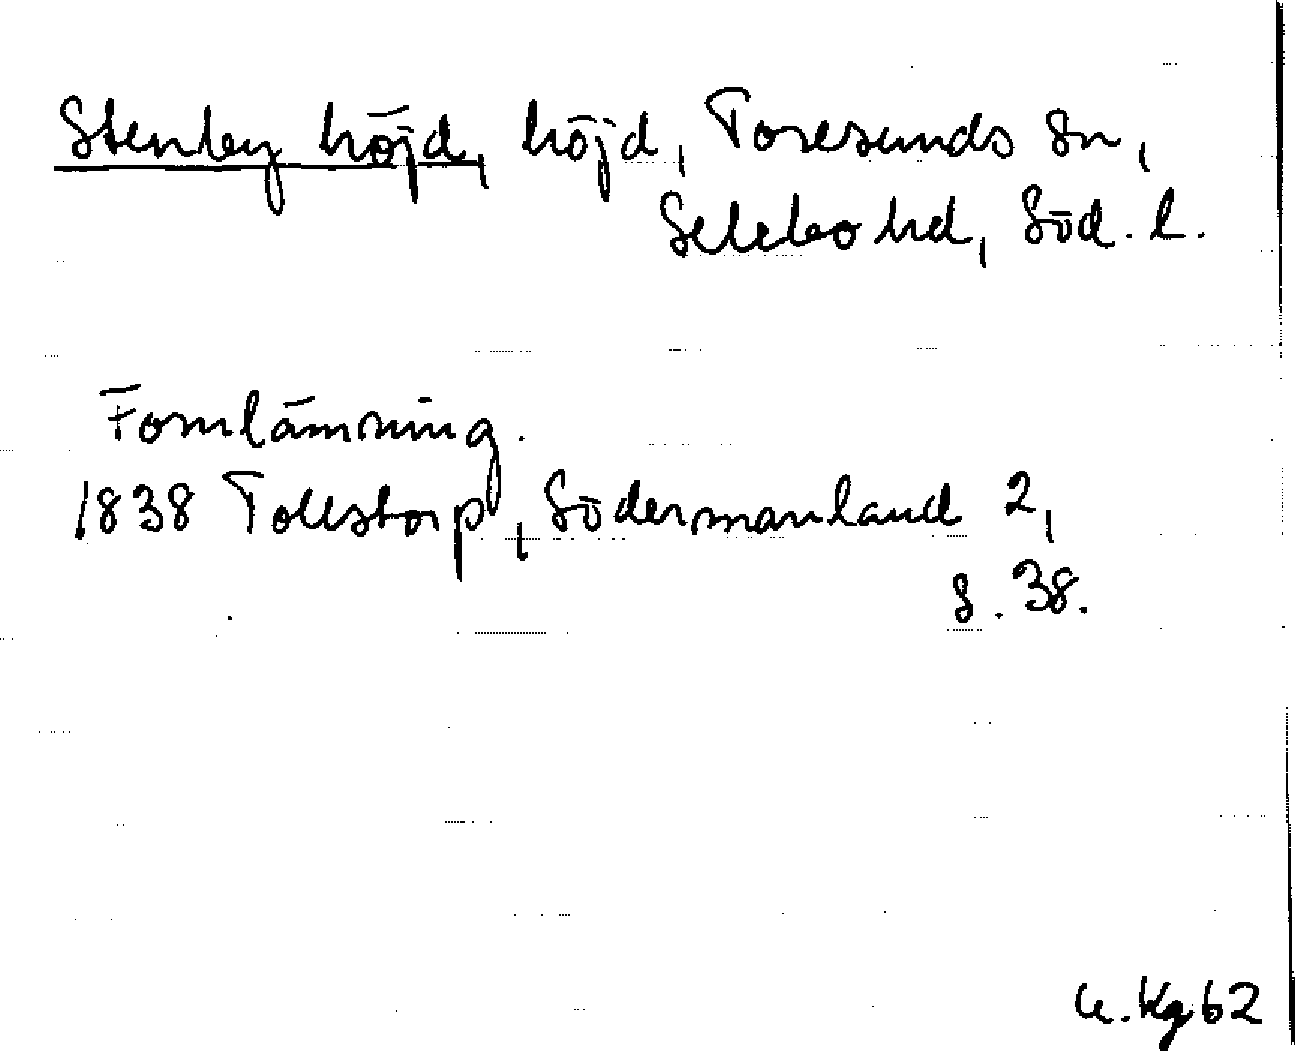 Stenby höjd, höjd, Toresunds sn,
Selebo hd, Söd. l.
Fornlämning.
1838 Tollstorp, Södermanland 2,
s. 38.
U. Kg 62